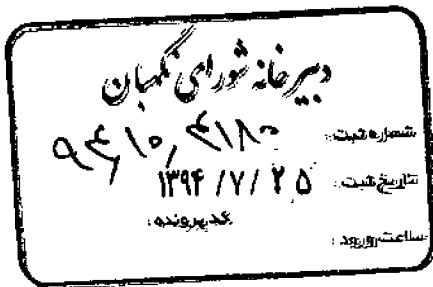 دبیرخانه شورای نگهبان
شماره ثبت: ۹۴/۱۰/۴۱۸۰
تاریخ ثبت: ۱۳۹۴/۷/۲۵
کد پرونده:
ساعت ورود: